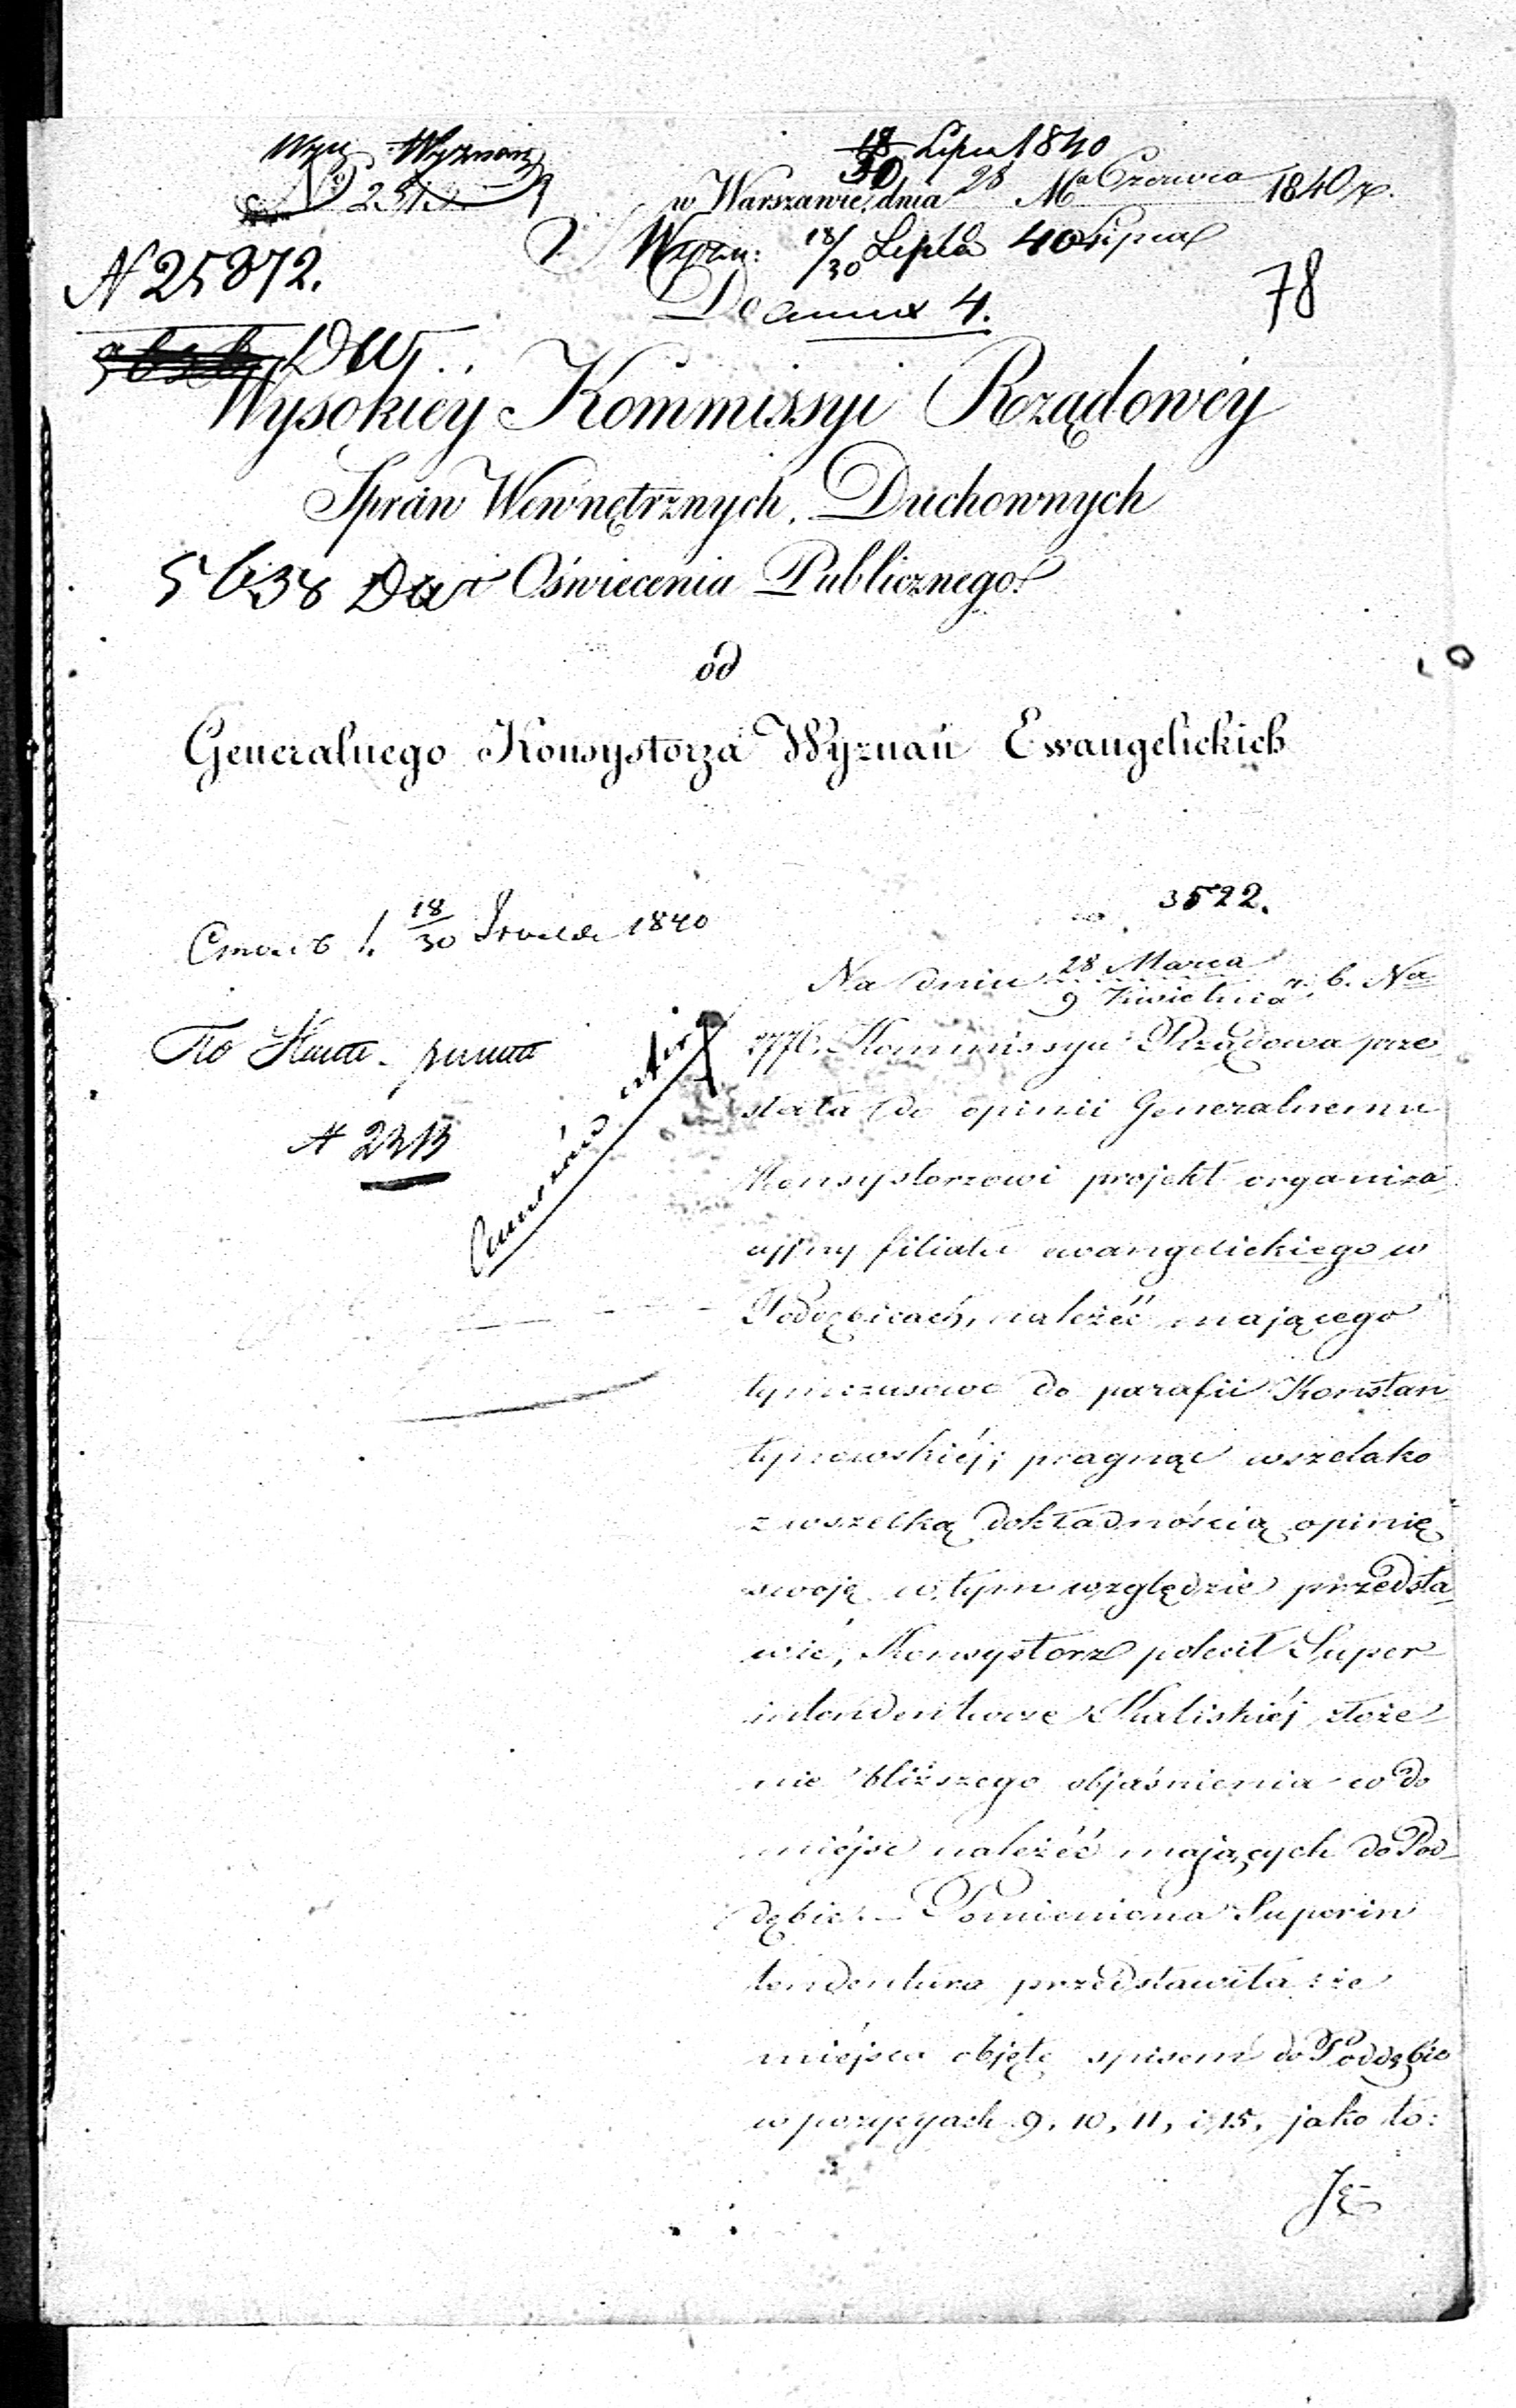 Wyzn
18/30 Lipca 1840
w Warszawie, dnia 28 Czerwca 1840 r.
18/30 Lipca 40
N 25872.
annex 4.
78
DW.
Wysokiey Kommissyi Rządowéy
Spraw Wewnętrznych, Duchownych
5638 DW i Oświecenia Publicznego
od
Generalnego Konsystorza Wyznań Ewangelickich
3522.
18/30 1840
N 2313
Na dniu 28 Marca / 9 Kwietnia r. b. No
Kommissya Rządowa prze
słała do opinii Generalnemu
Konsystorzowi projekt organiza
cyjny filiału ewangelickiego w
Poddębicach, należéć mającego
tymczasowo do parafii Konstan
tynowskiéj; pragnąc wszelako
z wszelką dokładnością opinię
swoję w tym względzie przedsta
wić, Konsystorz polecił Super
intendenturze Kaliskiéj złoże
nie bliższego objaśnienia co do
miéjsc należéć mających do Pod
dębic. – Pomieniona Superin
tendentura przedstawiła: że
miéjsca objęte spisem do Poddębic
w pozycyach 9, 10, 11, i 15, jako to: